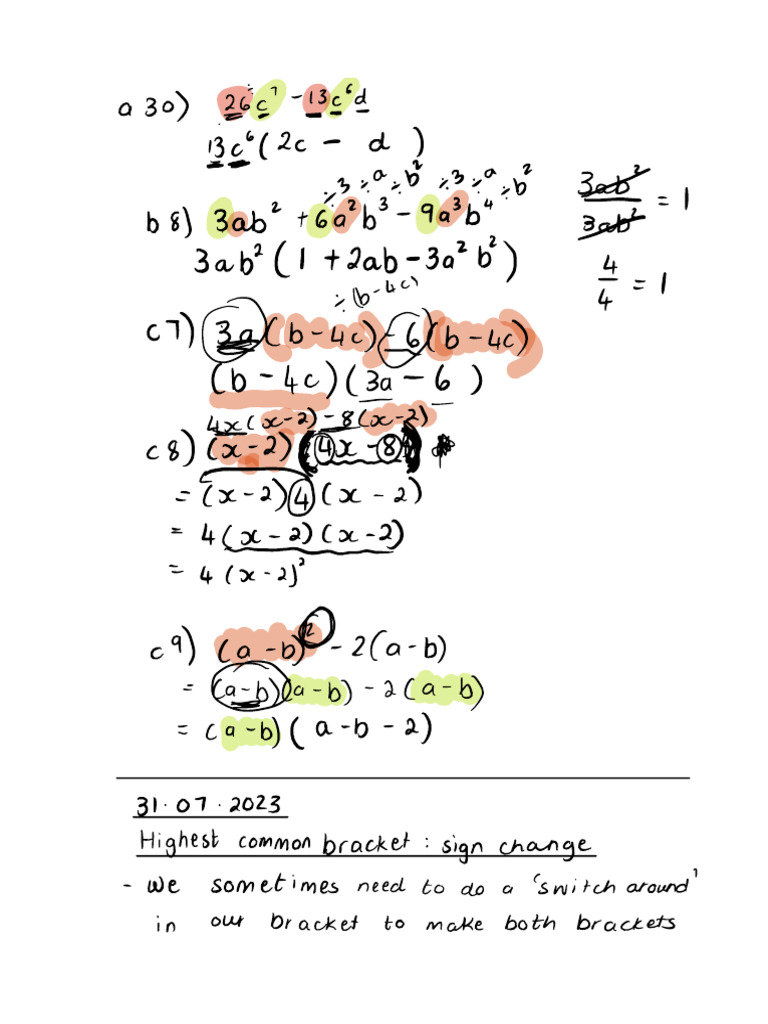 a 30) 26c⁷ - 13c⁶d
13c⁶(2c - d)
÷3 ÷a ÷b² ÷3 ÷a ÷b²
b 8) 3ab² + 6a²b³ - 9a³b⁴
3ab²(1 + 2ab - 3a²b²)
3ab²/3ab² = 1
4/4 = 1
÷(b-4c)
c 7) 3a(b-4c) - 6(b-4c)
(b-4c)(3a-6)
4x(x-2) - 8(x-2)
c 8) (x-2)(4x-8)
= (x-2)4(x-2)
= 4(x-2)(x-2)
= 4(x-2)²
c 9) (a-b)² - 2(a-b)
= (a-b)(a-b) - 2(a-b)
= (a-b)(a-b-2)
31.07.2023
Highest common bracket: sign change
- We sometimes need to do a 'switch around'
in our bracket to make both brackets